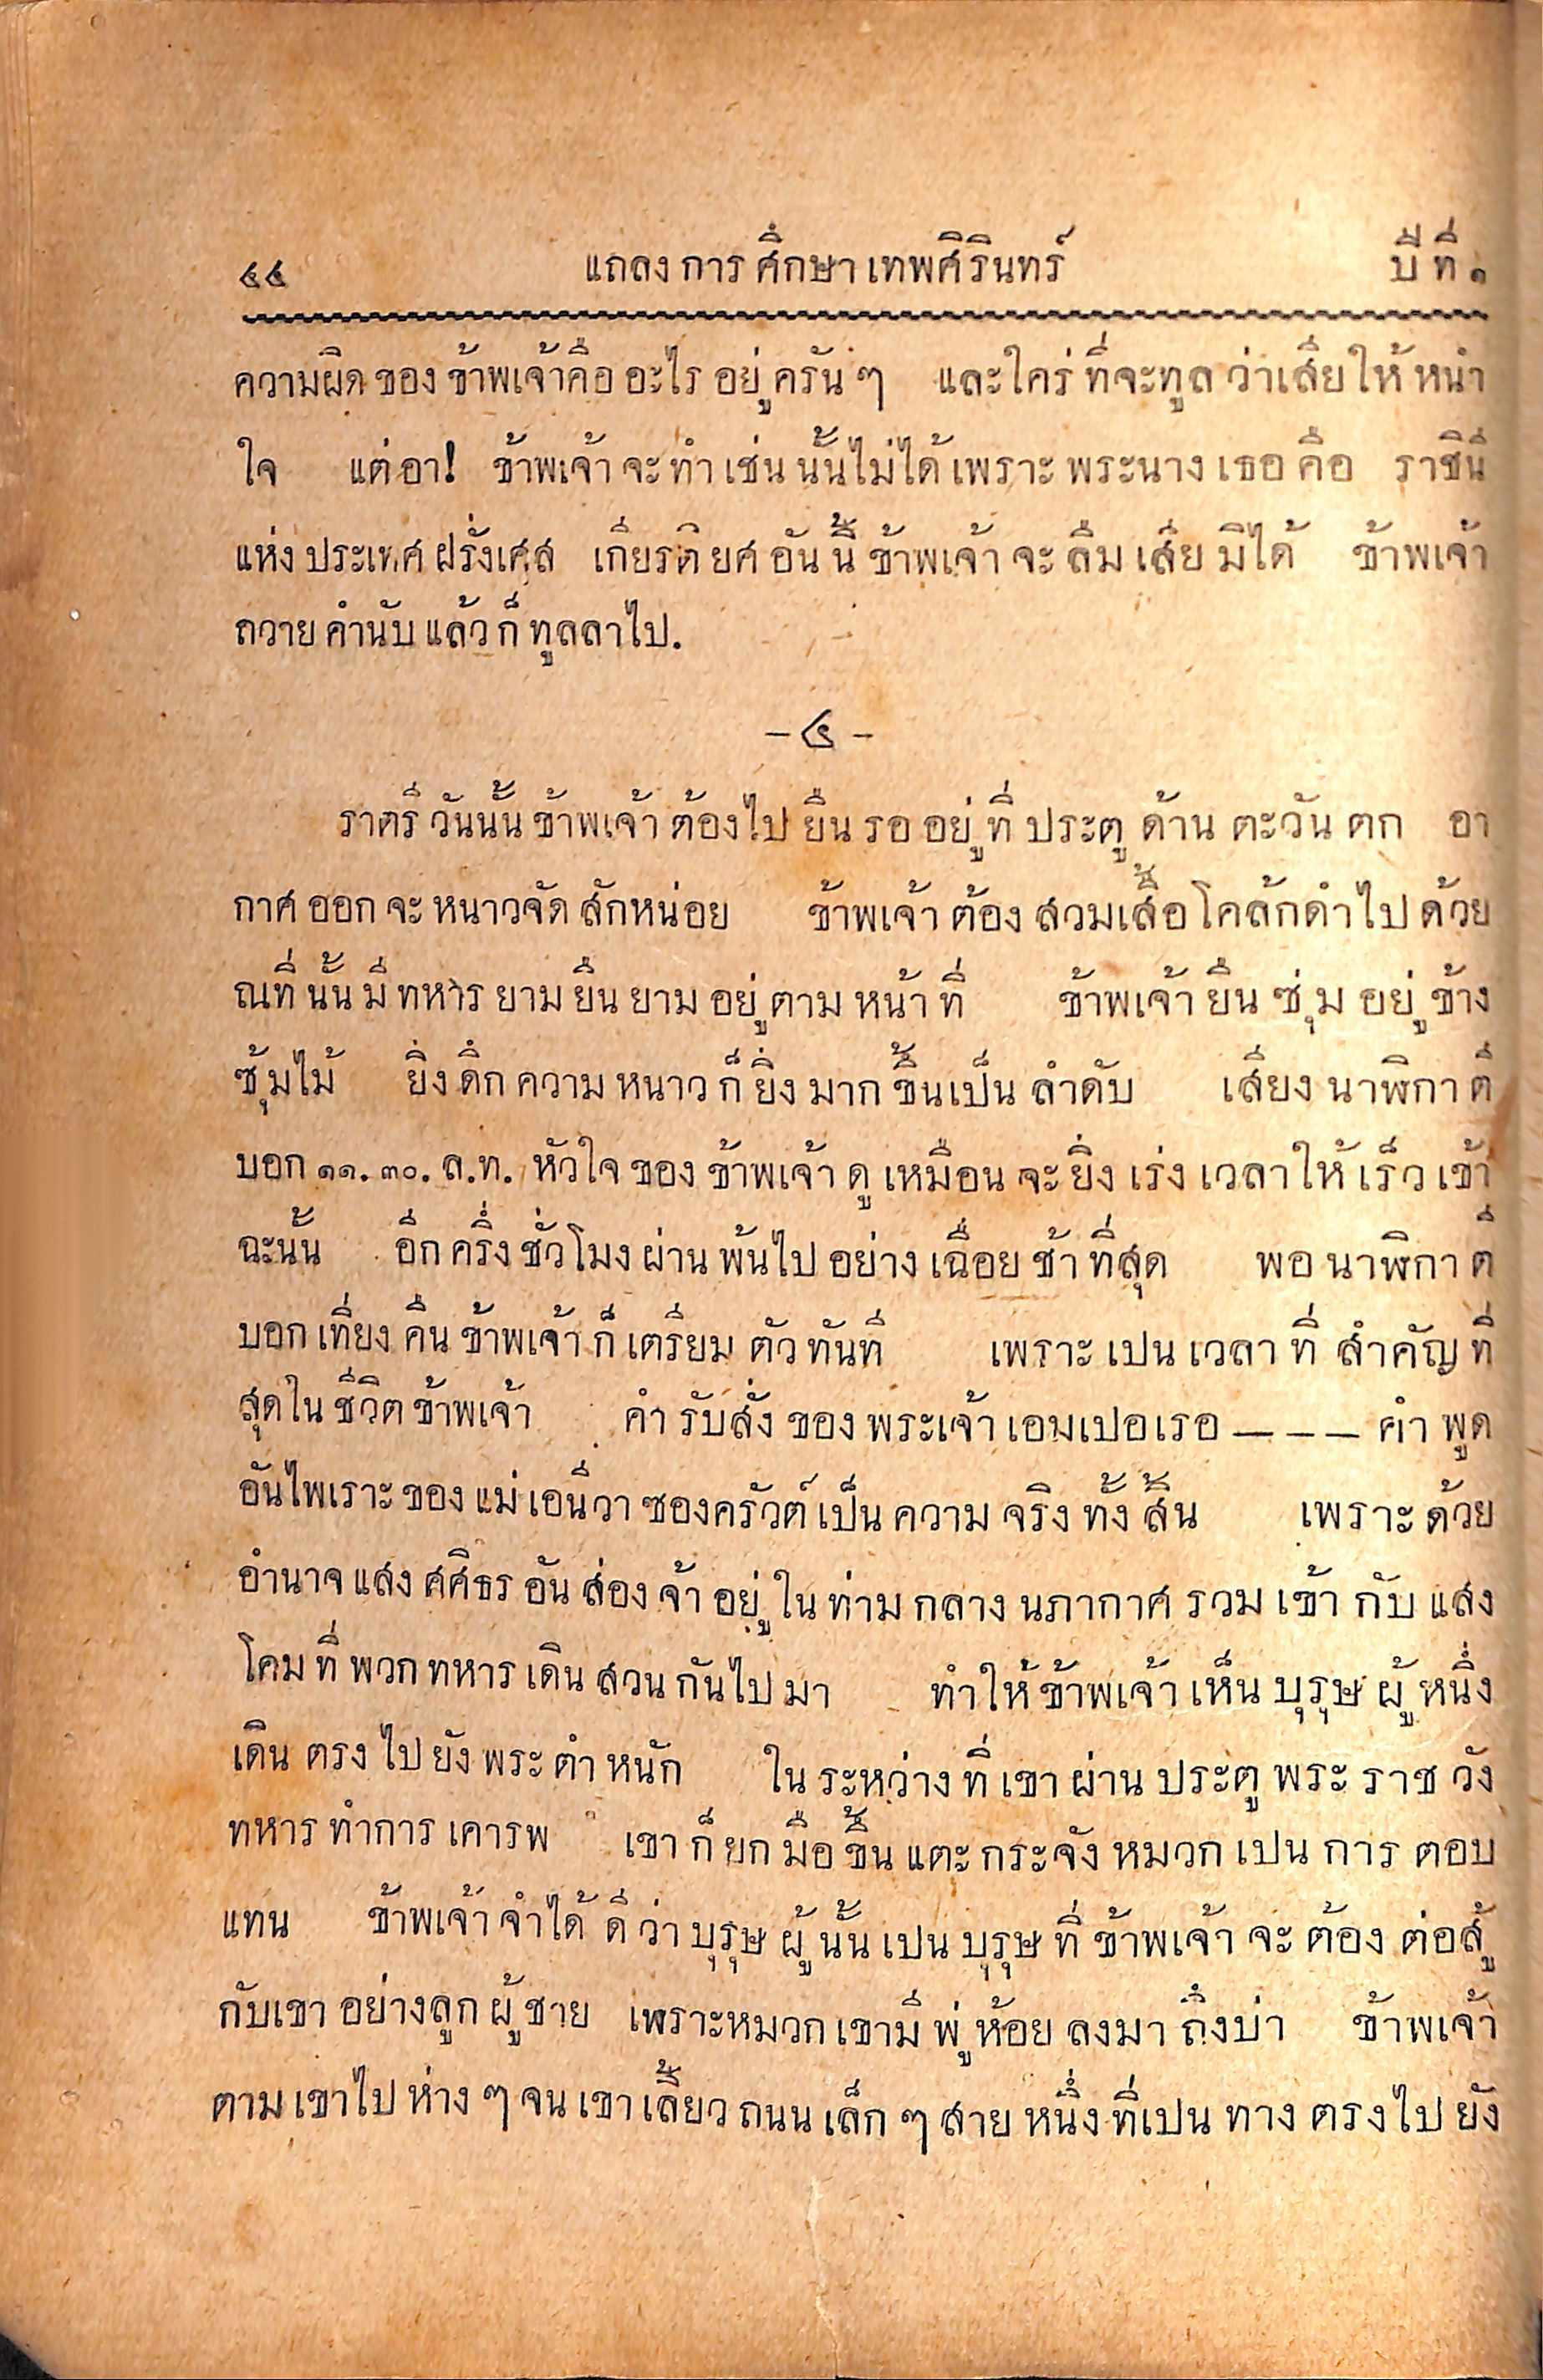 ๔๔ แถลงการศึกษาเทพศิรินทร์ ปีที่ ๑
ความผิดของข้าพเจ้าคืออะไรอยู่ครัน ๆ และใคร่ที่จะทูลว่าเสียให้หนำ
ใจ แต่อา! ข้าพเจ้าจะทำเช่นนั้นไม่ได้เพราะพระนางเธอคือ ราชินี
แห่งประเทศฝรั่งเศส เกียรติยศอันนี้ข้าพเจ้าจะลืมเสียมิได้ ข้าพเจ้า
ถวายคำนับแล้วก็ทูลลาไป.
-๔-
ราตรีวันนั้นข้าพเจ้าต้องไปยืนรออยู่ที่ประตูด้านตะวันตก อา
กาศออกจะหนาวจัดสักหน่อย ข้าพเจ้าต้องสวมเสื้อโคล้กดำไปด้วย
ณที่นั้นมีทหารยามยืนยามอยู่ตามหน้าที่ ข้าพเจ้ายืนซุ่มอยู่ข้าง
ซุ้มไม้ ยิ่งดึกความหนาวก็ยิ่งมากขึ้นเป็นลำดับ เสียงนาฬิกาตี
บอก ๑๑.๓๐. ล.ท. หัวใจของข้าพเจ้าดูเหมือนจะยิ่งเร่งเวลาให้เร็วเข้า
ฉะนั้น อีกครึ่งชั่วโมงผ่านพ้นไปอย่างเฉื่อยช้าที่สุด พอนาฬิกาตี
บอกเที่ยงคืนข้าพเจ้าก็เตรียมตัวทันที เพราะเปนเวลาที่สำคัญที่
สุดในชีวิตข้าพเจ้า คำรับสั่งของพระเจ้าเอมเปอเรอ — – — คำพูด
อันไพเราะของแม่เอนีวาซองครัวต์เป็นความจริงทั้งสิ้น เพราะด้วย
อำนาจแสงศศิธรอันส่องจ้าอยู่ในท่ามกลางนภากาศรวมเข้ากับแสง
โคมที่พวกทหารเดินสวนกันไปมา ทำให้ข้าพเจ้าเห็นบุรุษผู้หนึ่ง
เดินตรงไปยังพระตำหนัก ในระหว่างที่เขาผ่านประตูพระราชวัง
ทหารทำการเคารพ เขาก็ยกมือขึ้นแตะกระจังหมวกเปนการตอบ
แทน ข้าพเจ้าจำได้ดีว่าบุรุษผู้นั้นเปนบุรุษที่ข้าพเจ้าจะต้องต่อสู้
กับเขาอย่างลูกผู้ชาย เพราะหมวกเขามีพู่ห้อยลงมาถึงบ่า ข้าพเจ้า
ตามเขาไปห่าง ๆ จนเขาเลี้ยวถนนเล็ก ๆ สายหนึ่งที่เปนทางตรงไปยัง